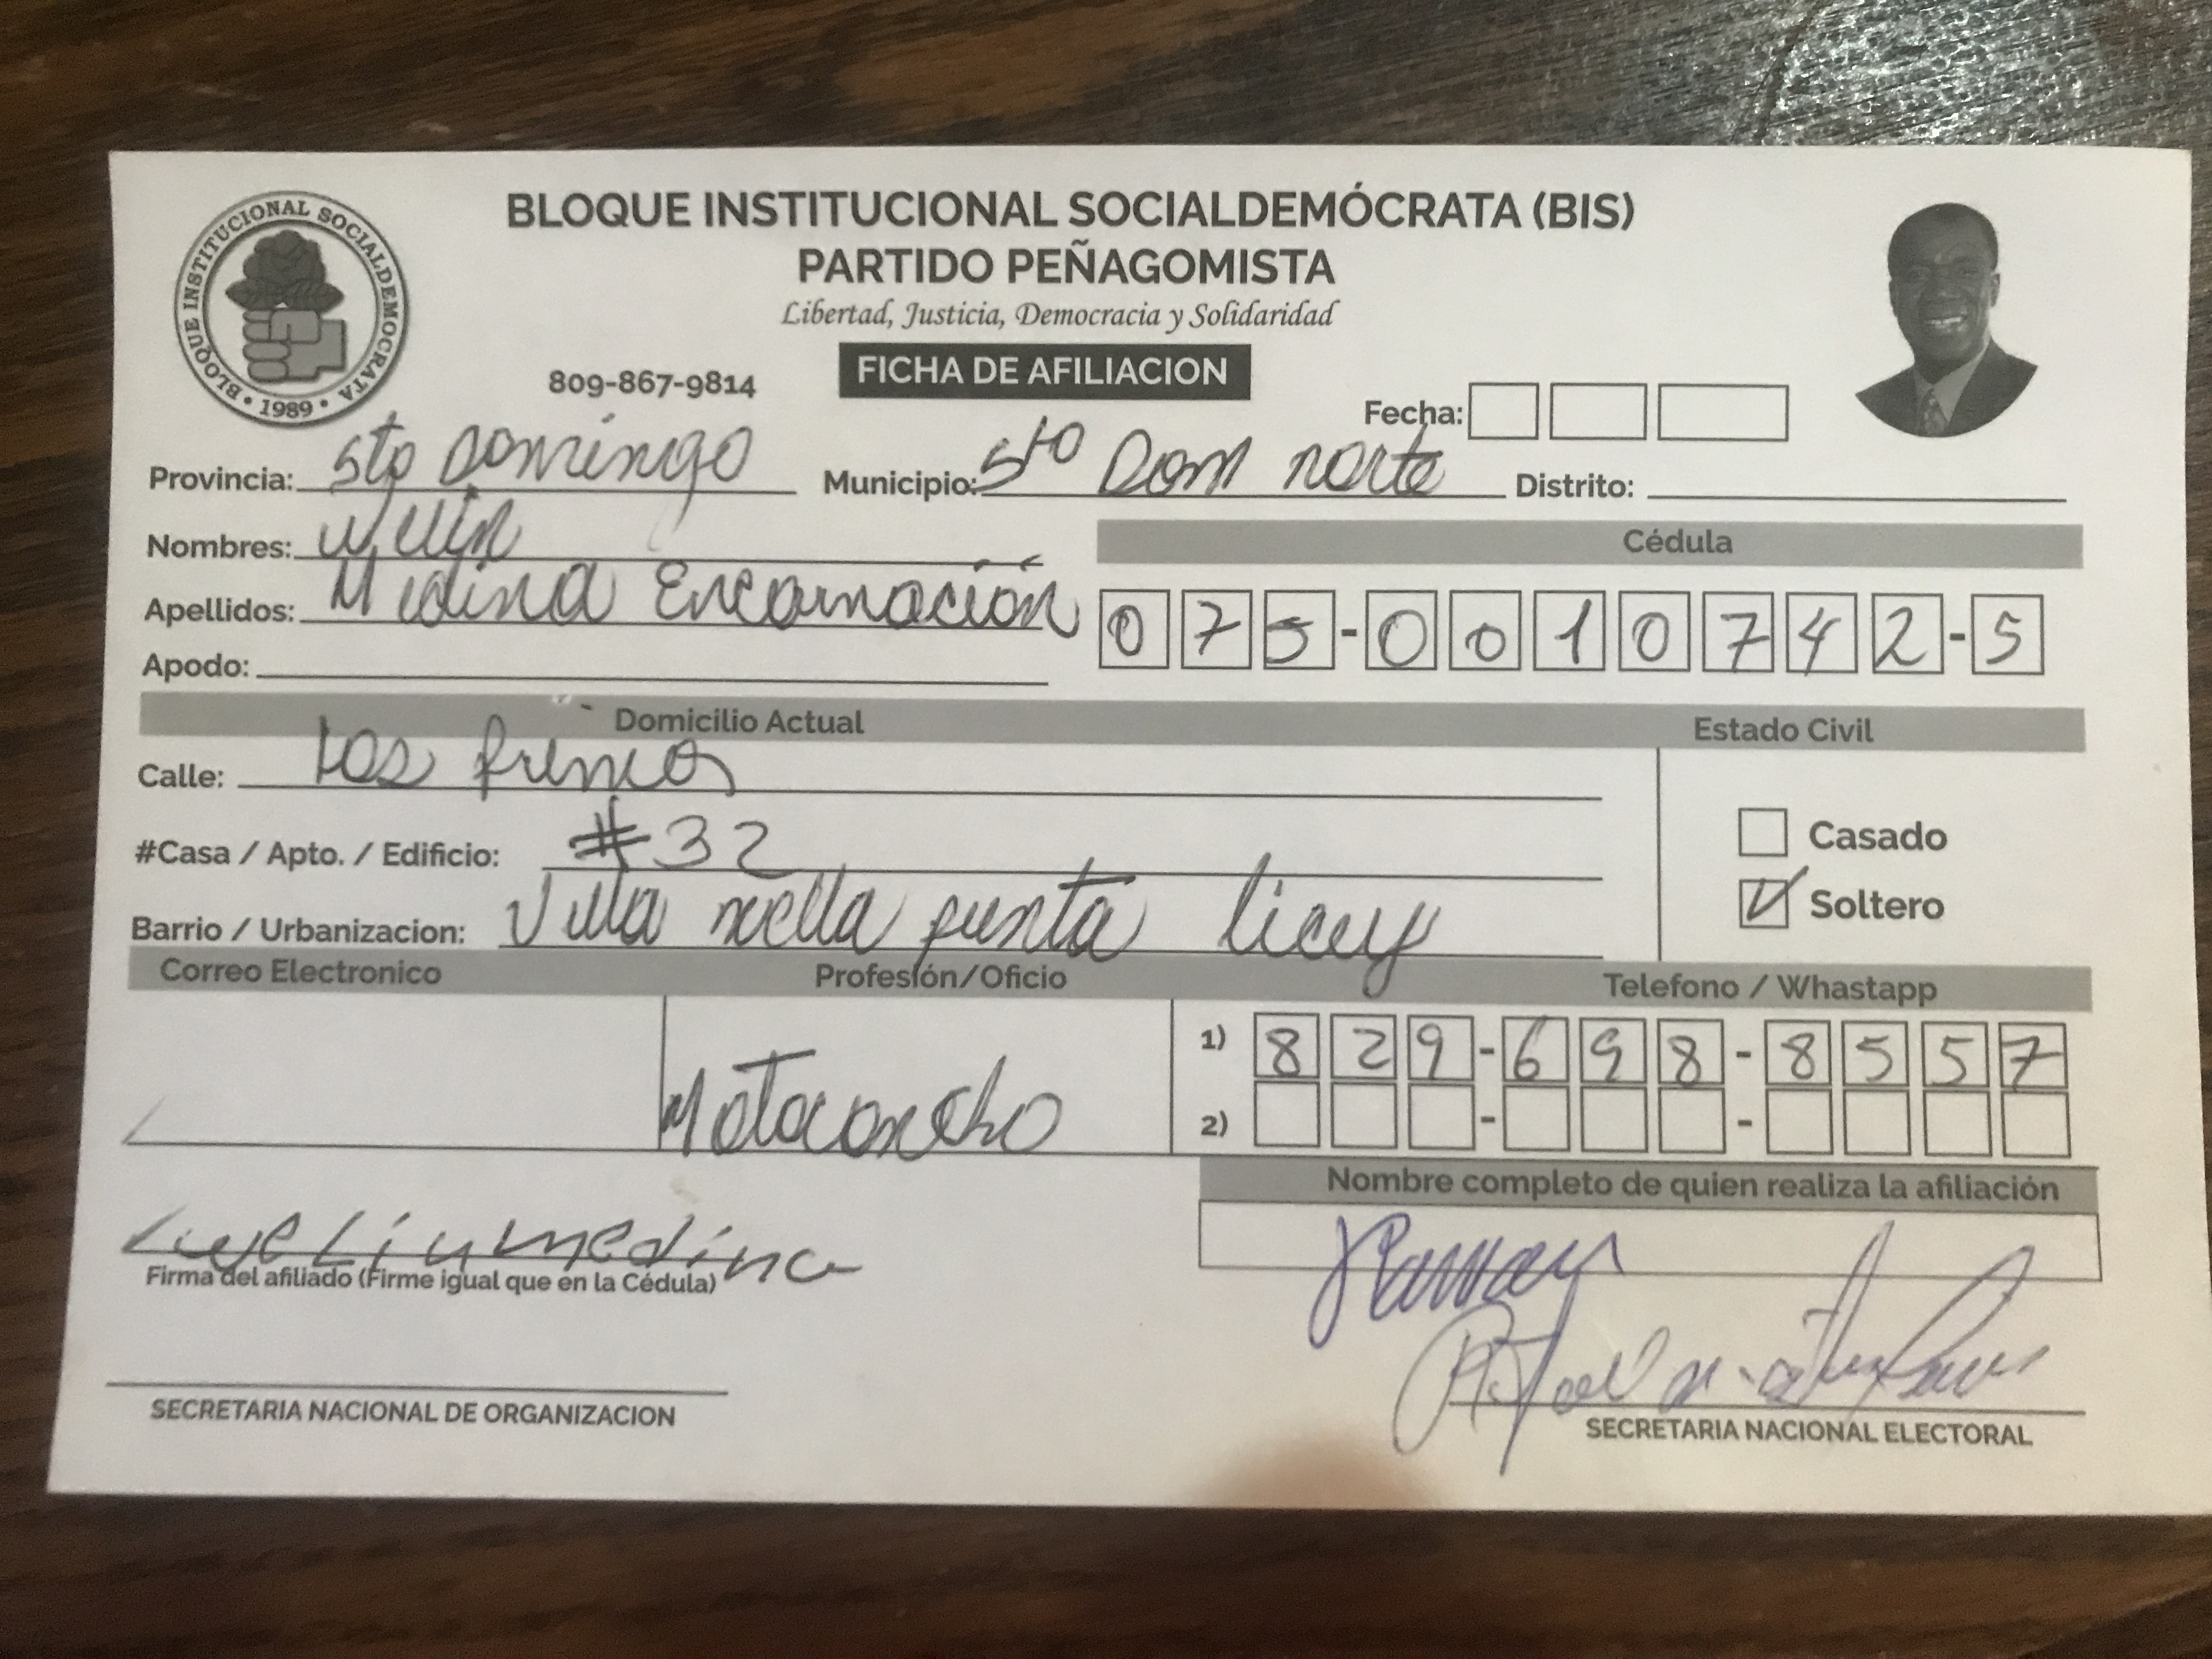 BLOQUE INSTITUCIONAL SOCIALDEMÓCRATA (BIS)
PARTIDO PEÑAGOMISTA
Libertad, Justicia, Democracia y Solidaridad
BLOQUE INSTITUCIONAL SOCIALDEMOCRATA • 1989 •
809-867-9814
FICHA DE AFILIACION
Fecha:
Provincia: Sto Domingo Municipio: Sto Dom norte Distrito:
Nombres:
Cédula
Apellidos: Medina Encarnación
075-0010742-5
Apodo:
Domicilio Actual Estado Civil
Calle: Los
#Casa / Apto. / Edificio: #32
Casado
Soltero
Barrio / Urbanizacion: Villa mella punta licey
Correo Electronico Profesión/Oficio Telefono / Whastapp
1) 829-698-8557
Motoconcho
2)
Nombre completo de quien realiza la afiliación
medina
Firma del afiliado (Firme igual que en la Cédula)
SECRETARIA NACIONAL DE ORGANIZACION
SECRETARIA NACIONAL ELECTORAL